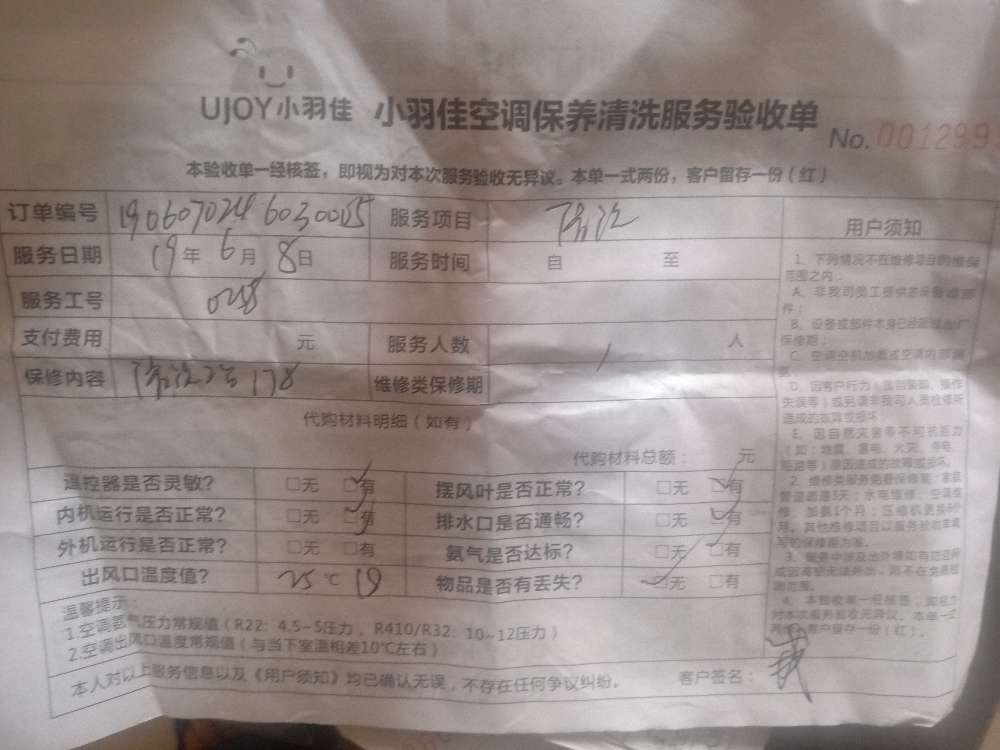 UJOY小羽佳 小羽佳空调保养清洗服务验收单
No. 0012995
本验收单一经核签，即视为对本次服务验收无异议。本单一式两份，客户留存一份（红）
订单编号 服务项目 用户须知
服务日期 19年6月8日 服务时间 自 至
服务工号 0258
支付费用 元 服务人数 1 人
保修内容 178 维修类保修期
代购材料明细（如有）
代购材料总额： 元
遥控器是否灵敏？ □无 □有 摆风叶是否正常？ □无 □有
内机运行是否正常？ □无 □有 排水口是否通畅？ □无 □有
外机运行是否正常？ □无 □有 氨气是否达标？ □无 □有
出风口温度值？ 25 ℃ 19 物品是否有丢失？ □无 □有
温馨提示：
1.空调氨气压力常规值（R22：4.5~5压力，R410/R32：10~12压力）
2.空调出风口温度常规值（与当下室温相差10℃左右）
本人对以上服务信息以及《用户须知》均已确认无误，不存在任何争议纠纷。 客户签名：
1、下列情况不在维修项目的维保
范围之内：
A、非我司员工提供
件；
B、设备或部件本身已经超过出厂
保修期；
C、空调空机加氨或空调内部
D、因客户行为（
失误等）或另请非我司人员检修所
造成的故障或损坏
E、因自然灾害等不可抗拒力
（如：地震、雷电、火灾、停电、
）原因造成的故障或损坏。
2、维修类服务免费保修期：家庭
管道疏通3天；水电维修、空调维
修、加氨1个月；压缩机更换6个
月。其他维修项目以服务验收单填
写的保修期为准。
3、服务中涉及
4、本验收单一经核签，即视为
对本次服务验收无异议。本单一式
两份，客户留存一份（红）。